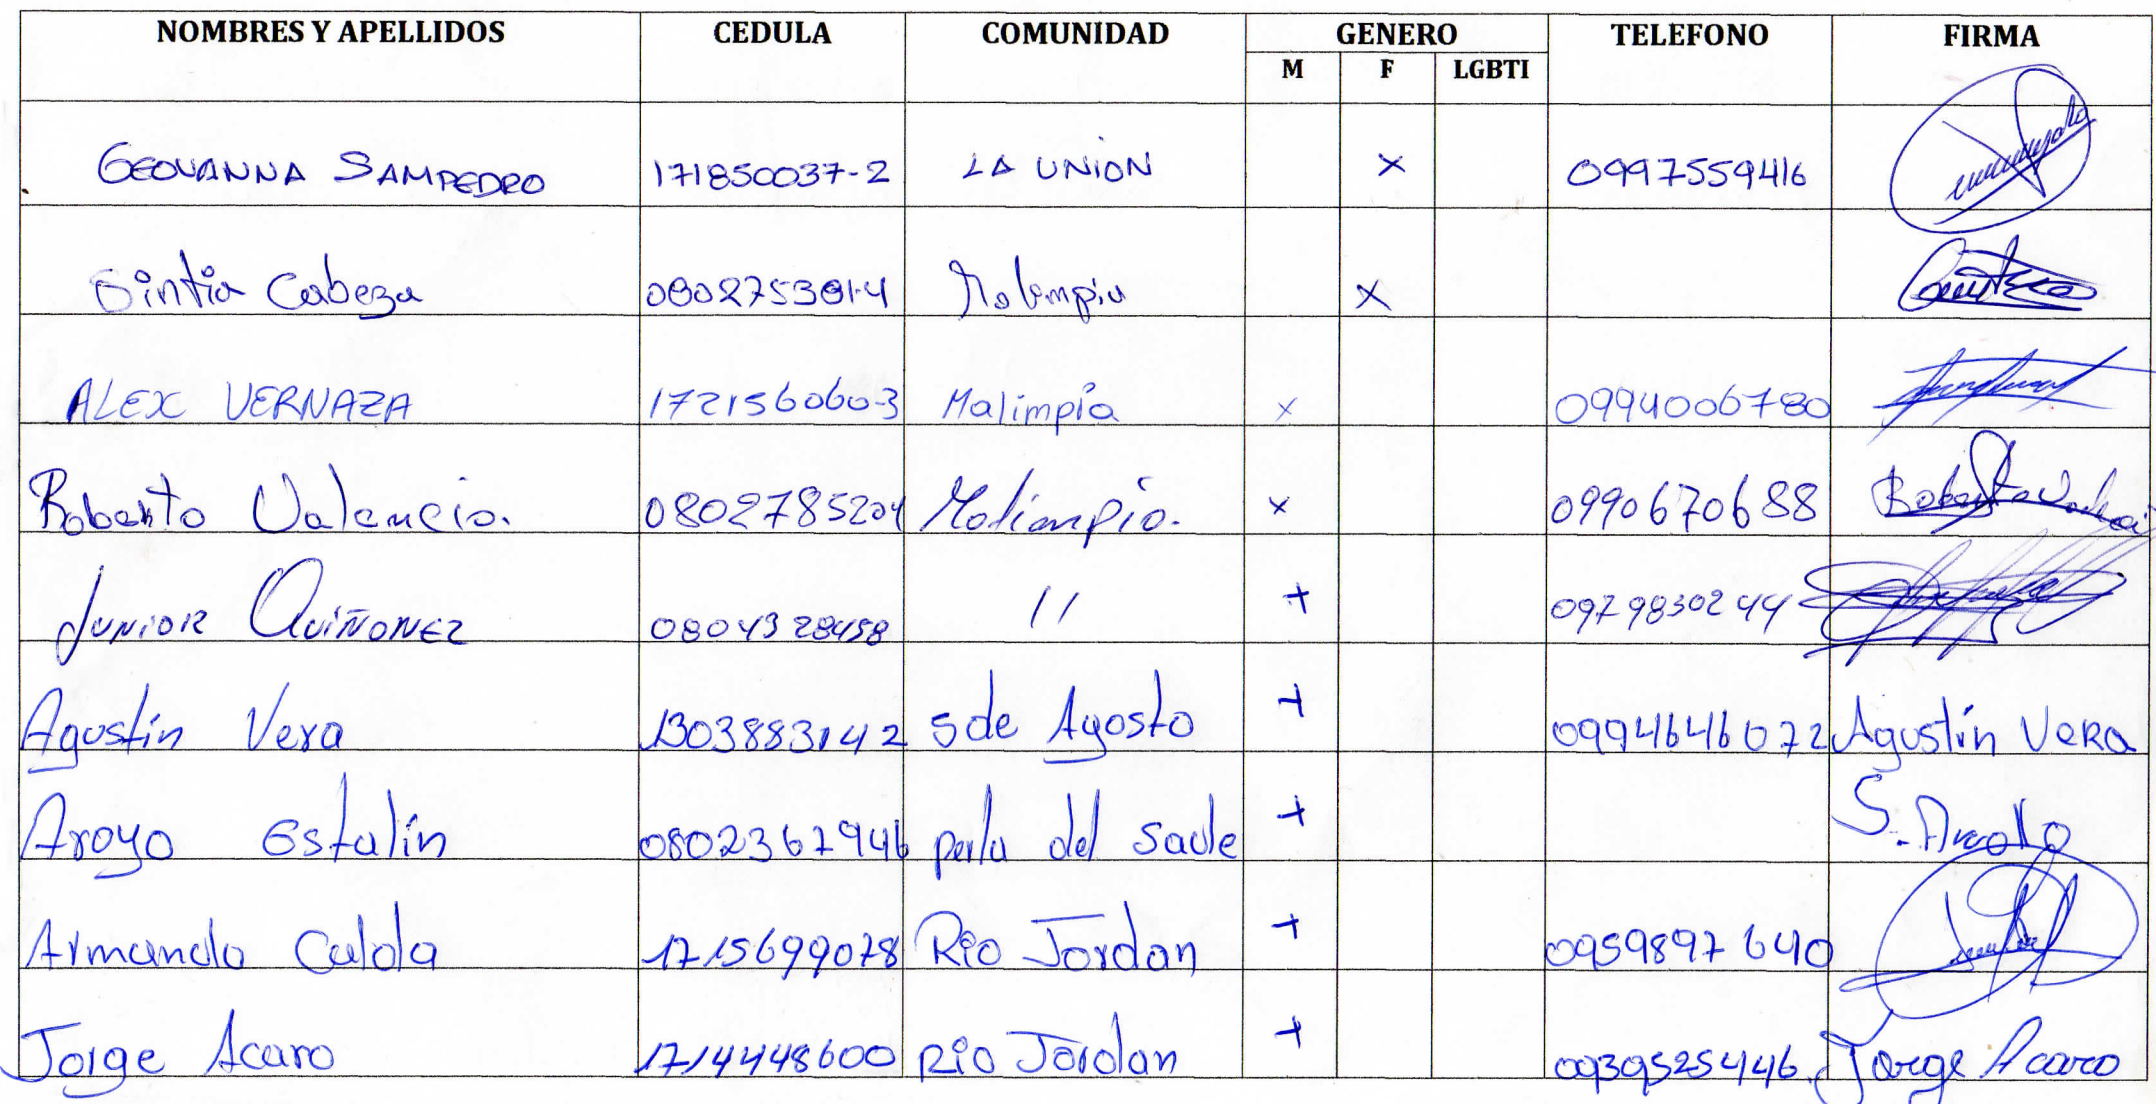 NOMBRES Y APELLIDOS CEDULA COMUNIDAD GENERO TELEFONO FIRMA
M F LGBTI
GEOVANNA SAMPEDRO 171850037-2 LA UNION X 0997559416
Sintia Cabeza 0802753814 Malimpia X
ALEX VERNAZA 172156060-3 Malimpia X 0994006780
Roberto Valencia. 0802785204 Malimpia. X 0990670688 Roberto Valencia
JUNIOR QUIÑONEZ 0804328458 11 + 0979830244
Agustín Vera 1303883142 5 de Agosto + 0994646072 Agustín Vera
Aroyo Estalin 0802367946 perla del Sade + S. Arroyo
Armando Calda 1715699078 Rio Jordan + 0959897640
Jorge Acaro 1714448600 Rio Jordan + 0939525446. Jorge Acaro